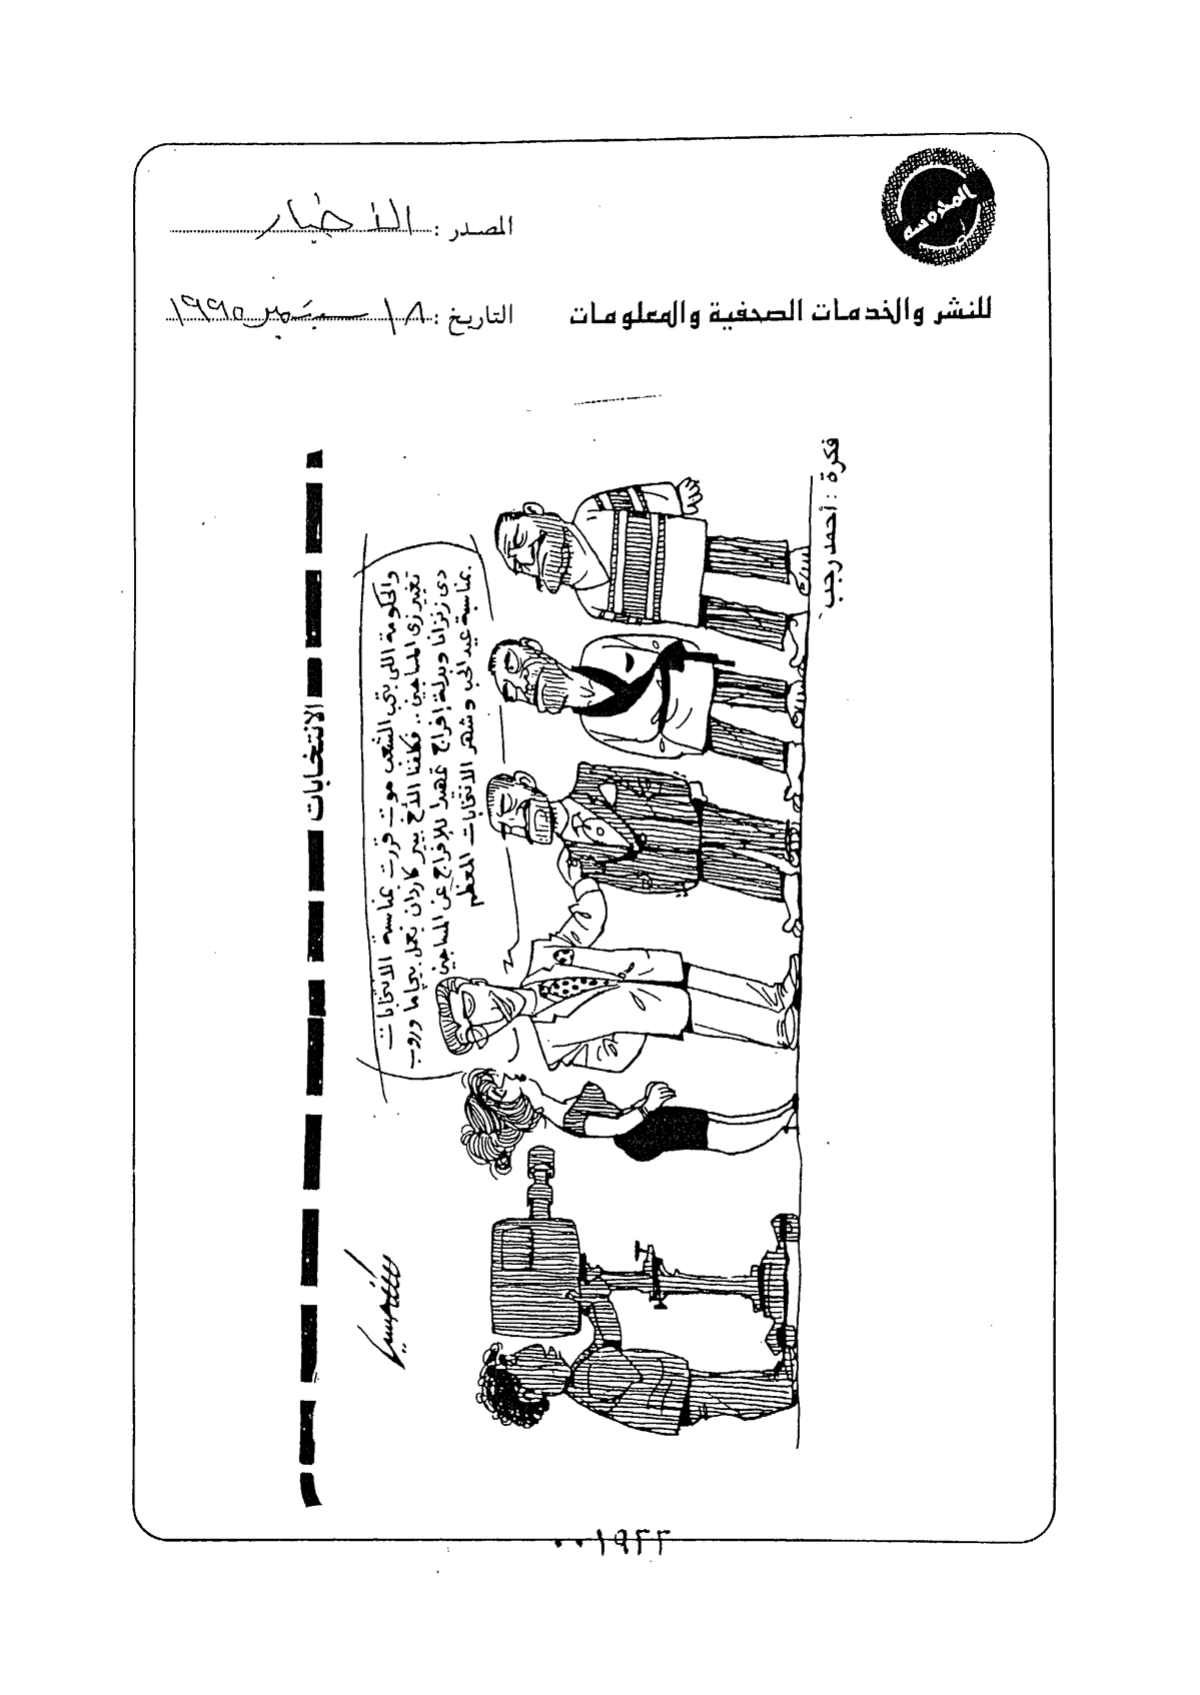 المحروسة
المصدر : الأخبار
للنشر والخدمات الصحفية والمعلومات
التاريخ : ١٨ سبتمبر ١٩٩٥
الانتخابات
والحكومة اللى بتحب الشعب موت قررت بمناسبة الانتخابات
تغيير زى المساجين .. فكلفنا الأخ بيير كاردان بعمل بيجاما وروب
دى زنزانا وبدلة إفراج تمهيدا للإفراج عن المساجين
بمناسبة عيد الحب وشهر الانتخابات المعظم
فكرة : أحمد رجب
٠٠١٩٢٢